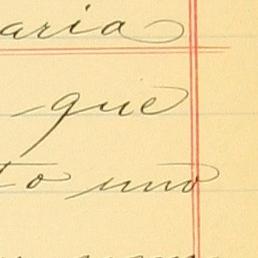 aria
que
to uno